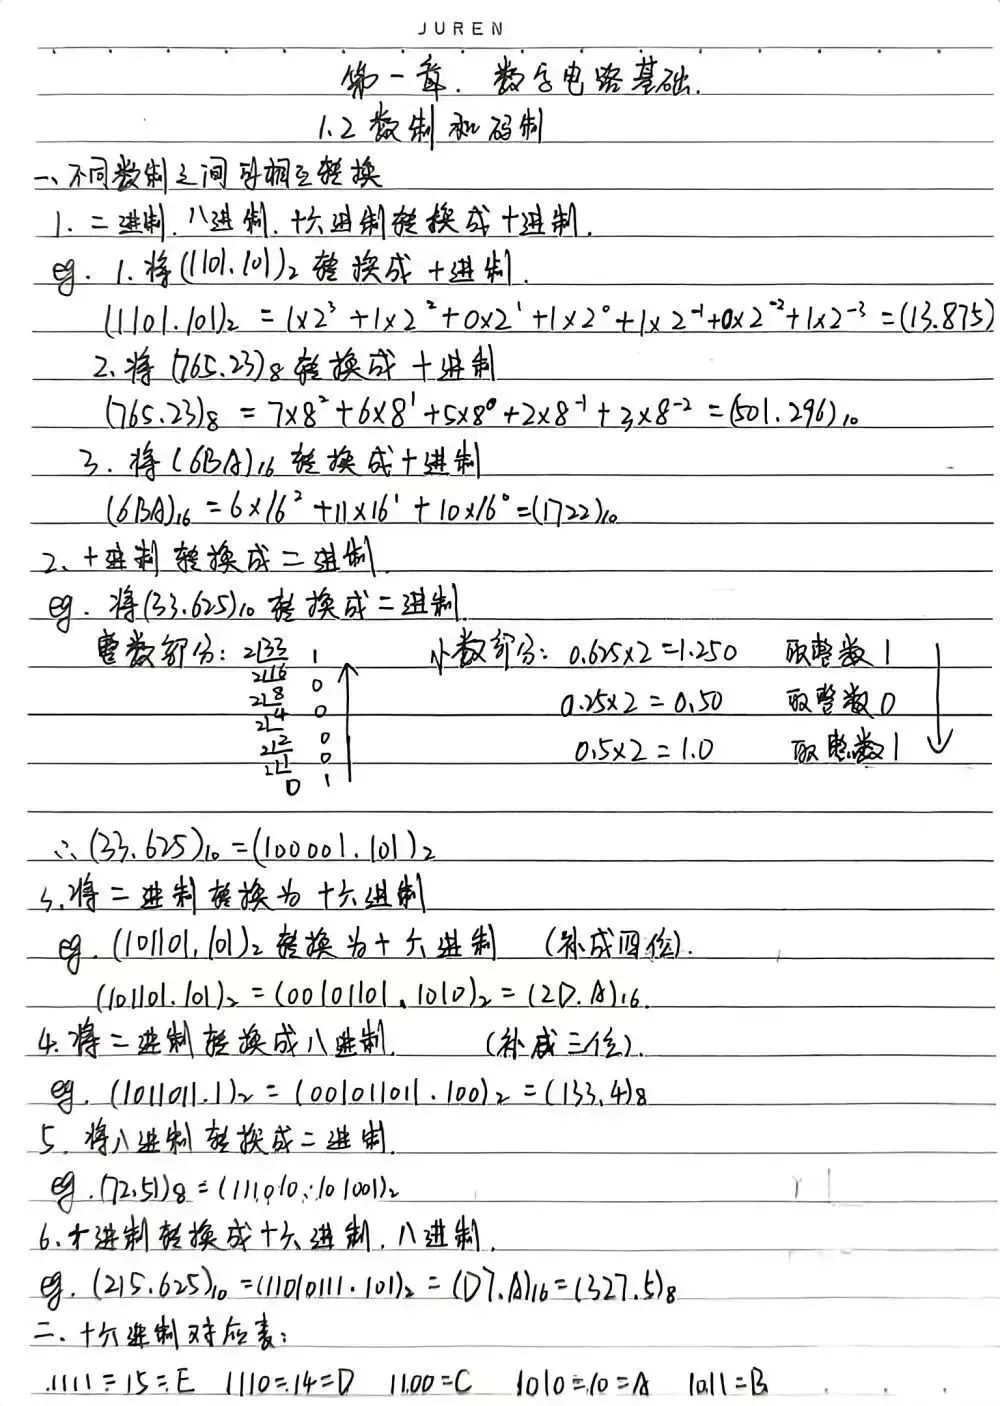 JUREN
第一章. 数字电路基础.
1.2 数制和码制
一、不同数制之间的相互转换
1. 二进制.八进制.十六进制转换成十进制.
eg. 1.将(1101.101)₂ 转换成十进制.
(1101.101)₂ = 1×2³ +1×2² +0×2¹ +1×2⁰ +1×2⁻¹+0×2⁻²+1×2⁻³ =(13.875)
2.将(765.23)₈转换成十进制
(765.23)₈ = 7×8² +6×8¹ +5×8⁰ +2×8⁻¹ +3×8⁻² =(501.296)₁₀
3. 将(6BA)₁₆ 转换成十进制
(6BA)₁₆ = 6×16² +11×16¹ +10×16⁰=(1722)₁₀
2、十进制转换成二进制.
eg. 将(33.625)₁₀ 转换成二进制.
整数部分: 2|33 1 小数部分: 0.625×2=1.250 取整数1
2|16 0
2|8 0 0.25×2=0.50 取整数0
2|4 0
2|2 0 0.5×2=1.0 取整数1
2|1 1
0
∴(33.625)₁₀ =(100001.101)₂
3.将二进制转换为十六进制
eg. (101101.101)₂ 转换为十六进制 (补成四位).
(101101.101)₂ = (00101101.1010)₂ = (2D.A)₁₆.
4. 将二进制转换成八进制. (补成三位).
eg. (1011011.1)₂ = (001011011.100)₂ =(133.4)₈
5. 将八进制转换成二进制.
eg.(72.51)₈ =(111010.101001)₂
6.十进制转换成十六进制.八进制.
eg. (215.625)₁₀ =(11010111.101)₂ = (D7.A)₁₆=(327.5)₈
二. 十六进制对应表:
1111=15=E 1110=14=D 1100=C 1010=10=A 1011=B